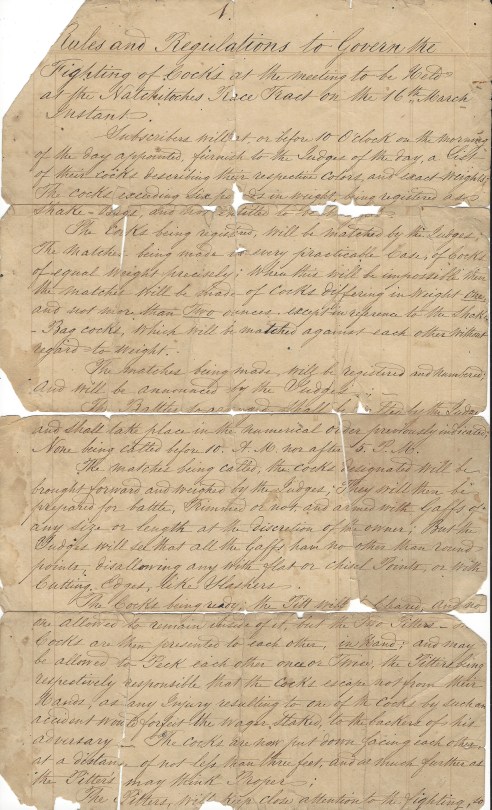 1.
Rules and Regulations to Govern the
Fighting of Cocks at the meeting to be Held
at the Natchitoches Race Tract on the 16th March
Instant.
Subscribers will at or before 10 O'Clock on the morning
of the day appointed, furnish to the Judges of the day, a List
of their cocks describing their respective colors, and exact Weights;
The cocks exceeding Six in weight, being registered as
Shake-Bags, and not entitled to be
The Cocks being registered, will be matched by the Judges,
The matches being made in every practicable Case, of Cocks
of equal weight precisely; When this will be impossible then
the matches will be made of Cocks differing in weight One
and not more than Two ounces except in reference to the Shake
-Bag cocks, which will be matched against each other without
regard to weight.
The matches being made, will be registered and numbered;
And will be announced by the Judges;
The Battles shall by the Judges
and shall take place in the numerical order previously indicated,
None being called before 10. A.M. nor after 5. P.M.
The matches being called, the cocks designated will be
brought forward and weighed by the Judges; They will then be
prepared for battle, Trimmed or not, and armed with Gaffs of
any size or length at the discretion of the owner; But the
Judges will see that all the Gaffs have no other than round
points, disallowing any with flat or chisel Points, or with
Cutting Edges, like Slashers.
The Cocks being ready, the Pitt will be cleared, And no
one allowed to remain inside of it, but the Two Pitters -
Cocks are then presented to each other, in Hand; and may
be allowed to Peck each other once or Twice, the Pitters being
respectively responsible that the Cocks escape not from their
Hands, as any Injury resulting to one of the Cocks by such an
accident would forfeit the Wager, Staked, to the backers of his
adversary — The Cocks are now put down facing each other
at a distance of not less than three feet, and as much further as
the Pitters may think Proper;
The Pitters, will keep close attention to the fighting,